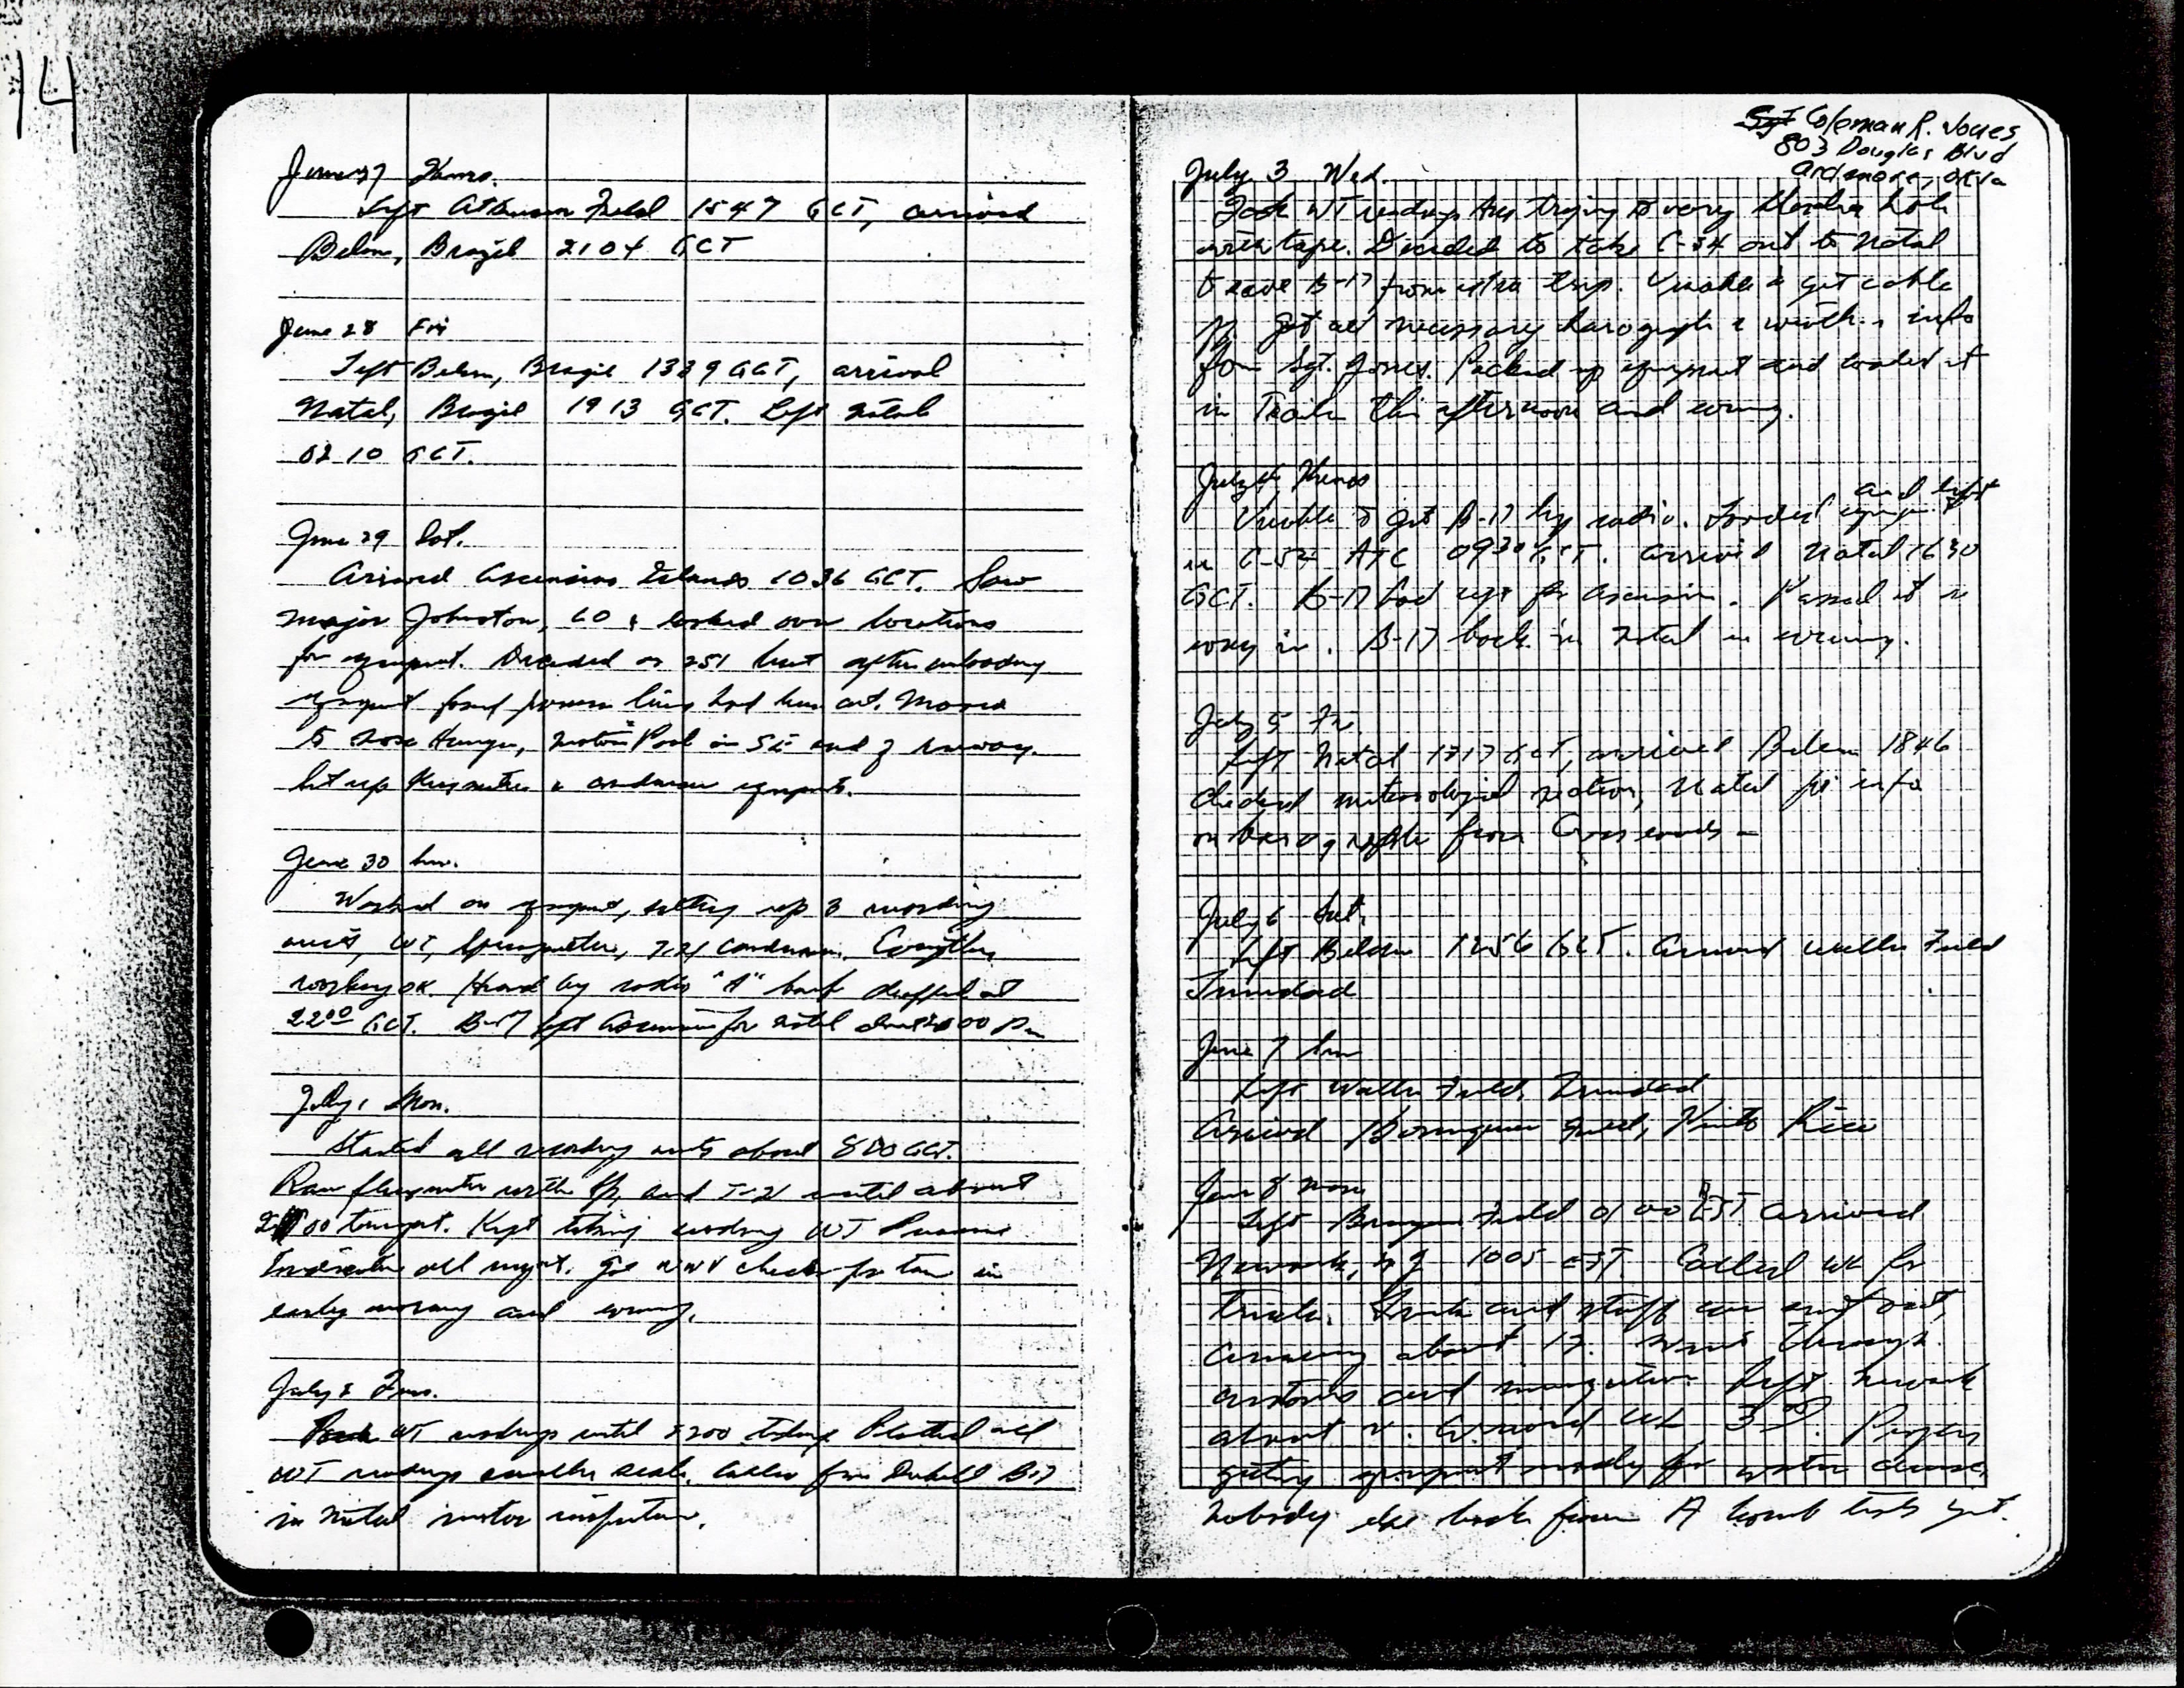 14
June 27 Thurs.
Left Atkinson Field 1547 GCT, arrived
Belem, Brazil 2104 GCT
June 28 Fri
Left Belem, Brazil 1339 GCT, arrival
Natal, Brazil 1913 GCT. Left Natal
0210 GCT.
June 29 Sat.
Arrived Ascension Islands 1036 GCT. Saw
Major Johnston, CO & looked over locations
for equipment. Decided on 251 but after unloading
equipment found power lines had been cut. Moved
to Nose Hangar, Motor Pool on SE end of runway.
Set up & condenser equipment.
June 30 Sun.
Worked on equipment, setting up 3 recording
units, WT, T-21 condenser. Everything
working OK. Heard by radio "A" bomb dropped at
2200 GCT. B-17 left Ascension for Natal 00 Pm
July 1 Mon.
Started all recording units about 800 GCT.
Ran with and T-21 until about
00 tonight. Kept taking reading WT Pressure
Indicator all night. Got WWV check for time in
early morning and evening.
July 2 Tues.
Took WT readings until 2200 Plotted all
WT readings smaller scale. from B-17
in Natal motor
Sgt Coleman R. Jones
803 Douglas Blvd
Ardmore, Okla
July 3 Wed.
Took WT readings trying to vary hole
with tape. Decided to take C-54 out to Natal
to save B-17 from extra trip. Unable to get cable
Got all necessary barograph & info
from Sgt. Jones. Packed up equipment and loaded it
in Trailer this afternoon and evening.
July 4 Thurs
and left
Unable to get B-17 by radio. Loaded equipment
in C-54 ATC 0930 GCT. Arrived Natal 1630
GCT. B-17 had left for Ascension. Passed it on
way in. B-17 back in Natal in evening.
July 5 Fri
Left Natal GCT, arrived Belem 1846
Checked meteorological section, Natal for info
on barographs from Crossroads -
July 6 Sat.
Left Belem 1256 GCT. Arrived Waller Field
Trinidad
June 7 Sun
Left Waller Field, Trinidad
Arrived Borinquen Field, Puerto Rico
June 8 Mon
Left Borinquen Field 0100 EST arrived
Newark, NJ 1005 EST. Called WL for
truck. Truck and staff car sent out,
arriving about 12. Went through
customs and immigration. Left Newark
about Arrived WL 3 00.
getting equipment ready for
Nobody else back from A bomb tests yet.